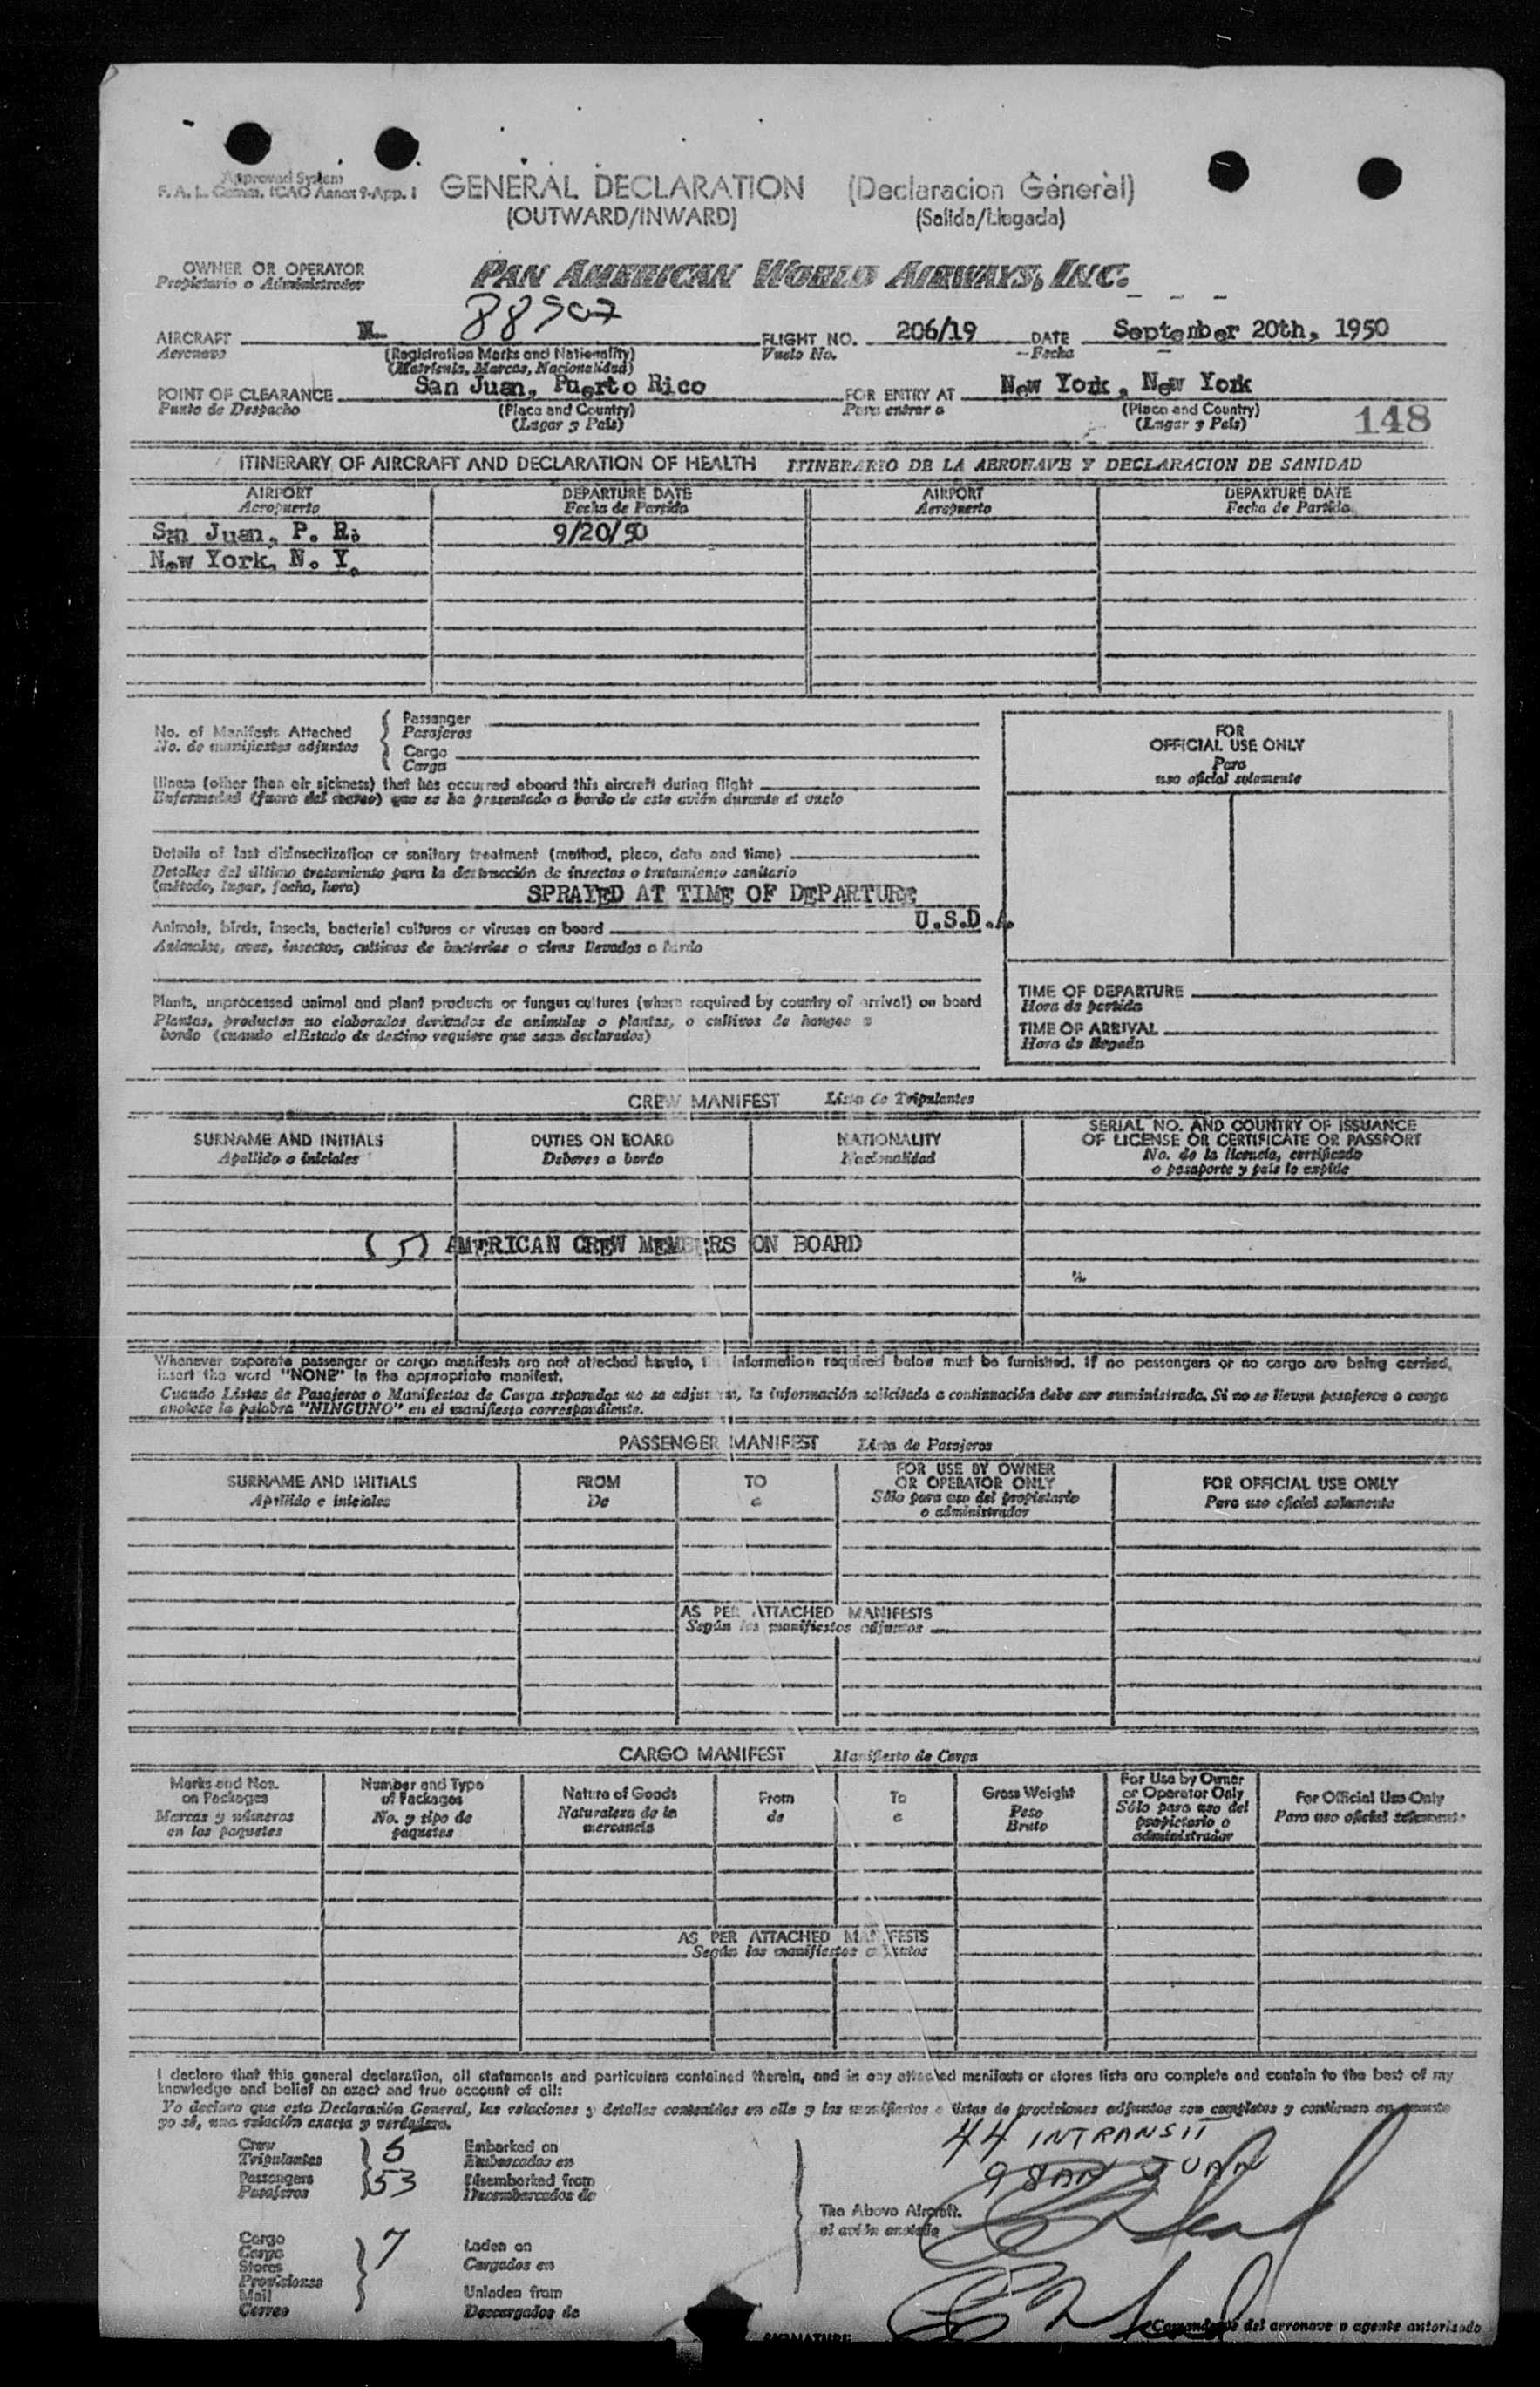 Approved System
F. A. L. Comm. ICAO Annex 9-App. 1
GENERAL DECLARATION (Declaracion General)
(OUTWARD/INWARD) (Salida/Llegada)
OWNER OR OPERATOR PAN AMERICAN WORLD AIRWAYS, INC.
Propietario o Administrador
AIRCRAFT N 88907 FLIGHT NO. 206/19 DATE September 20th, 1950
Aeronave (Registration Marks and Nationality) Vuelo No. Fecha
(Matricula, Marcas, Nacionalidad)
POINT OF CLEARANCE San Juan, Puerto Rico FOR ENTRY AT New York, New York
Punto de Despacho (Place and Country) Para entrar a (Place and Country)
(Lugar y Pais) (Lugar y Pais) 148
ITINERARY OF AIRCRAFT AND DECLARATION OF HEALTH ITINERARIO DE LA AERONAVE Y DECLARACION DE SANIDAD
AIRPORT DEPARTURE DATE AIRPORT DEPARTURE DATE
Aeropuerto Fecha de Partida Aeropuerto Fecha de Partida
San Juan, P. R. 9/20/50
New York, N. Y.
No. of Manifests Attached Passenger
No. de manifiestos adjuntos Pasajeros
Cargo
Carga
FOR
OFFICIAL USE ONLY
Para
uso oficial solamente
Illness (other than air sickness) that has occurred aboard this aircraft during flight
Enfermedad (fuera del mareo) que se ha presentado a bordo de este avión durante el vuelo
Details of last disinsectization or sanitary treatment (method, place, date and time)
Detalles del último tratamiento para la destrucción de insectos o tratamiento sanitario
(método, lugar, fecha, hora) SPRAYED AT TIME OF DEPARTURE
U.S.D.A.
Animals, birds, insects, bacterial cultures or viruses on board
Animales, aves, insectos, cultivos de bacterias o virus llevados a bordo
Plants, unprocessed animal and plant products or fungus cultures (where required by country of arrival) on board
Plantas, productos no elaborados derivados de animales o plantas, o cultivos de hongos a
bordo (cuando el Estado de destino requiere que sean declarados)
TIME OF DEPARTURE
Hora de partida
TIME OF ARRIVAL
Hora de llegada
CREW MANIFEST Lista de Tripulantes
SURNAME AND INITIALS DUTIES ON BOARD NATIONALITY SERIAL NO. AND COUNTRY OF ISSUANCE
OF LICENSE OR CERTIFICATE OR PASSPORT
Apellido o iniciales Deberes a bordo Nacionalidad No. de la licencia, certificado
o pasaporte y pais lo expide
(5) AMERICAN CREW MEMBERS ON BOARD
Whenever separate passenger or cargo manifests are not attached hereto, the information required below must be furnished. If no passengers or no cargo are being carried,
insert the word "NONE" in the appropriate manifest.
Cuando Listas de Pasajeros o Manifiestos de Carga separados no se adjuntan, la información solicitada a continuación debe ser suministrada. Si no se llevan pasajeros o carga
anótese la palabra "NINGUNO" en el manifiesto correspondiente.
PASSENGER MANIFEST Lista de Pasajeros
SURNAME AND INITIALS FROM TO FOR USE BY OWNER
OR OPERATOR ONLY FOR OFFICIAL USE ONLY
Apellido e iniciales De a Sólo para uso del propietario
o administrador Para uso oficial solamente
AS PER ATTACHED MANIFESTS
Según los manifiestos adjuntos
CARGO MANIFEST Manifiesto de Carga
Marks and Nos.
on Packages
Marcas y números
en los paquetes
Number and Type
of Packages
No. y tipo de
paquetes
Nature of Goods
Naturaleza de la
mercancía
From
de
To
a
Gross Weight
Peso
Bruto
For Use by Owner
or Operator Only
Sólo para uso del
propietario o
administrador
For Official Use Only
Para uso oficial solamente
AS PER ATTACHED MANIFESTS
Según los manifiestos adjuntos
I declare that this general declaration, all statements and particulars contained therein, and in any attached manifests or stores lists are complete and contain to the best of my
knowledge and belief an exact and true account of all:
Yo declaro que esta Declaración General, las relaciones y detalles contenidos en ella y los manifiestos o listas de provisiones adjuntos son completos y contienen en cuanto
yo sé, una relación exacta y verdadera.
44 INTRANSIT
9 SAN JUAN
Crew 5 Embarked on
Tripulantes Embarcados en
Passengers 53 Disembarked from
Pasajeros Desembarcados de
The Above Aircraft.
el avión anotado
Cargo 7 Laden on
Carga Cargados en
Stores
Provisiones
Mail Unladen from
Correo Descargados de
SIGNATURE
Comandante del aeronave o agente autorizado